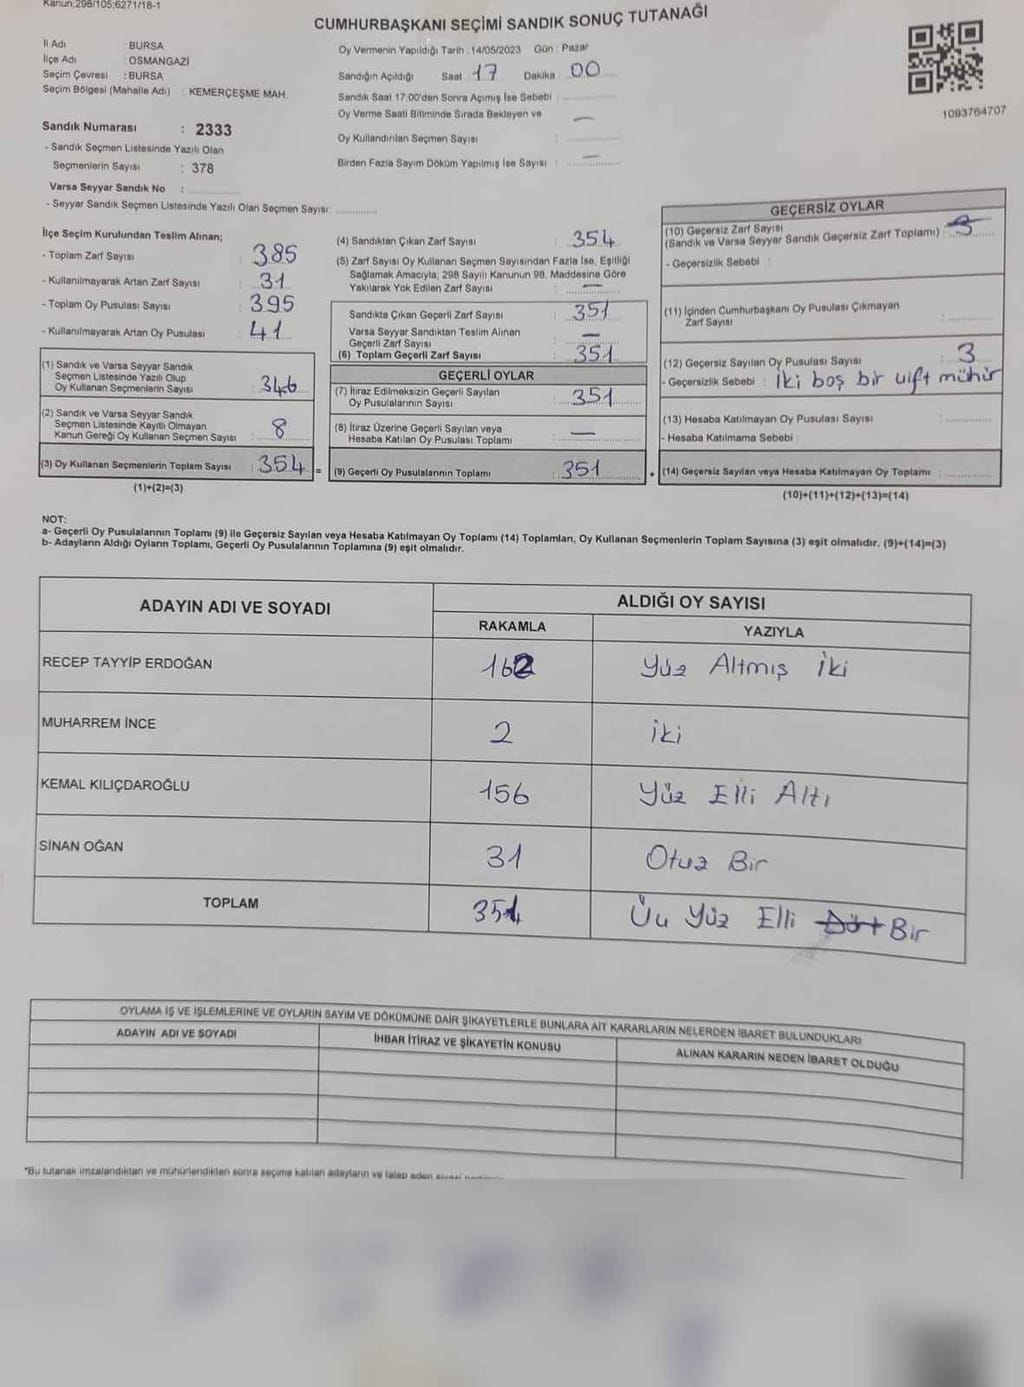 Kanun;298/105;6271/18-1
CUMHURBAŞKANI SEÇİMİ SANDIK SONUÇ TUTANAĞI
İl Adı : BURSA
İlçe Adı : OSMANGAZİ
Seçim Çevresi : BURSA
Seçim Bölgesi (Mahalle Adı) : KEMERÇEŞME MAH.
Sandık Numarası : 2333
- Sandık Seçmen Listesinde Yazılı Olan
Seçmenlerin Sayısı : 378
Varsa Seyyar Sandık No :
- Seyyar Sandık Seçmen Listesinde Yazılı Olan Seçmen Sayısı:
Oy Vermenin Yapıldığı Tarih : 14/05/2023 Gün : Pazar
Sandığın Açıldığı Saat : 17 Dakika : 00
Sandık Saat 17:00'den Sonra Açımış İse Sebebi :
Oy Verme Saati Bitiminde Sırada Bekleyen ve –
Oy Kullandırılan Seçmen Sayısı :
Birden Fazla Sayım Döküm Yapılmış İse Sayısı : –
1093764707
İlçe Seçim Kurulundan Teslim Alınan;
- Toplam Zarf Sayısı : 385
- Kullanılmayarak Artan Zarf Sayısı : 31
- Toplam Oy Pusulası Sayısı : 395
- Kullanılmayarak Artan Oy Pusulası : 41
(1) Sandık ve Varsa Seyyar Sandık
Seçmen Listesinde Yazılı Olup
Oy Kullanan Seçmenlerin Sayısı : 346
(2) Sandık ve Varsa Seyyar Sandık
Seçmen Listesinde Kayıtlı Olmayan
Kanun Gereği Oy Kullanan Seçmen Sayısı : 8
(3) Oy Kullanan Seçmenlerin Toplam Sayısı : 354 =
(1)+(2)=(3)
(4) Sandıktan Çıkan Zarf Sayısı : 354
(5) Zarf Sayısı Oy Kullanan Seçmen Sayısından Fazla İse, Eşitliği
Sağlamak Amacıyla; 298 Sayılı Kanunun 98. Maddesine Göre
Yakılarak Yok Edilen Zarf Sayısı : –
Sandıkta Çıkan Geçerli Zarf Sayısı : 351
Varsa Seyyar Sandıktan Teslim Alınan
Geçerli Zarf Sayısı : –
(6) Toplam Geçerli Zarf Sayısı : 351
GEÇERLİ OYLAR
(7) İtiraz Edilmeksizin Geçerli Sayılan
Oy Pusulalarının Sayısı : 351
(8) İtiraz Üzerine Geçerli Sayılan veya
Hesaba Katılan Oy Pusulası Toplamı : –
(9) Geçerli Oy Pusulalarının Toplamı : 351 +
GEÇERSİZ OYLAR
(10) Geçersiz Zarf Sayısı
(Sandık ve Varsa Seyyar Sandık Geçersiz Zarf Toplamı) : 3
- Geçersizlik Sebebi :
(11) İçinden Cumhurbaşkanı Oy Pusulası Çıkmayan
Zarf Sayısı :
(12) Geçersiz Sayılan Oy Pusulası Sayısı : 3
- Geçersizlik Sebebi : iki boş bir çift mühür
(13) Hesaba Katılmayan Oy Pusulası Sayısı :
- Hesaba Katılmama Sebebi :
(14) Geçersiz Sayılan veya Hesaba Katılmayan Oy Toplamı :
(10)+(11)+(12)+(13)=(14)
NOT:
a- Geçerli Oy Pusulalarının Toplamı (9) ile Geçersiz Sayılan veya Hesaba Katılmayan Oy Toplamı (14) Toplamları, Oy Kullanan Seçmenlerin Toplam Sayısına (3) eşit olmalıdır. (9)+(14)=(3)
b- Adayların Aldığı Oyların Toplamı, Geçerli Oy Pusulalarının Toplamına (9) eşit olmalıdır.
ADAYIN ADI VE SOYADI
ALDIĞI OY SAYISI
RAKAMLA YAZIYLA
RECEP TAYYİP ERDOĞAN 162 Yüz Altmış İki
MUHARREM İNCE 2 iki
KEMAL KILIÇDAROĞLU 156 Yüz Elli Altı
SİNAN OĞAN 31 Otuz Bir
TOPLAM 351 Üç Yüz Elli Dört Bir
OYLAMA İŞ VE İŞLEMLERİNE VE OYLARIN SAYIM VE DÖKÜMÜNE DAİR ŞİKAYETLERLE BUNLARA AİT KARARLARIN NELERDEN İBARET BULUNDUKLARI
ADAYIN ADI VE SOYADI İHBAR İTİRAZ VE ŞİKAYETİN KONUSU ALINAN KARARIN NEDEN İBARET OLDUĞU
*Bu tutanak imzalandıktan ve mühürlendikten sonra seçime katılan adayların ve talep eden siyasi